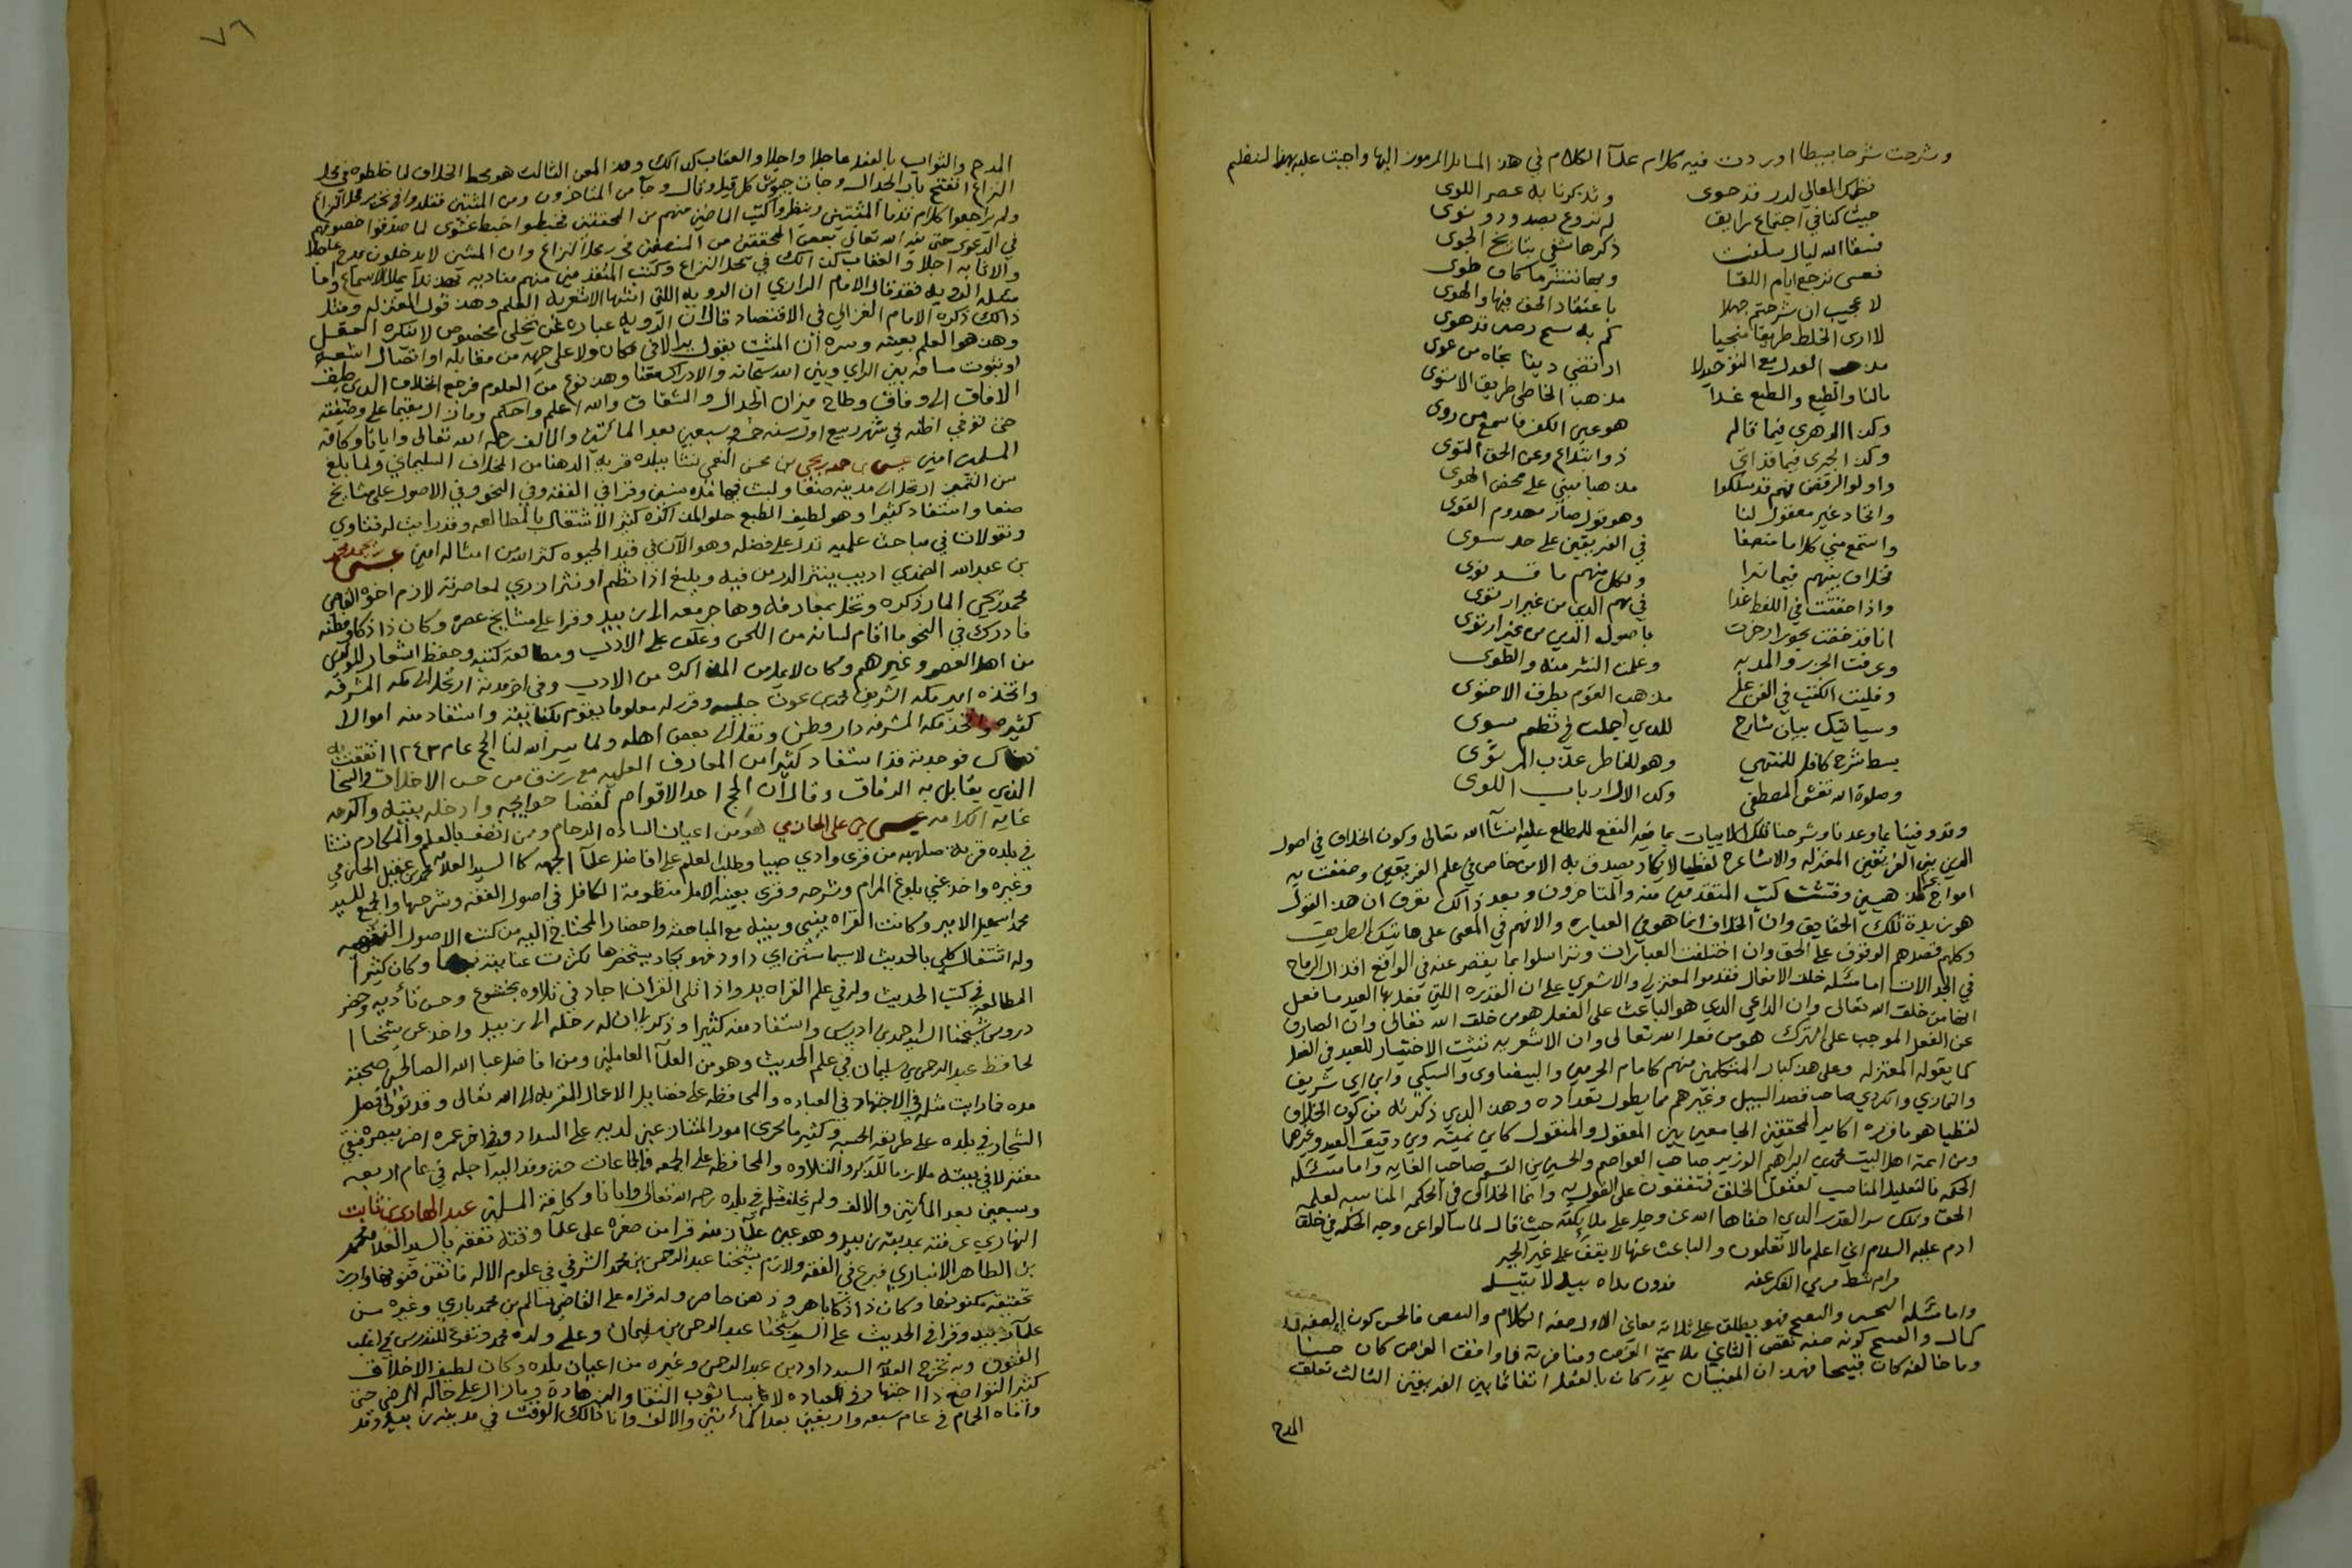 وشرحت شرحا بسيطا اوردت فيه كلام علمآ الكلام في هذه المسايل المرموز اليها واجبت عليه بهذا النظم
نظمك العالي لدر قد حوى وتذكرنا به عصر اللوى
حيث كنا في اجتماع رايق لم نروع بصدود ونوى
فسقا الله ليال سلفت ذكرها يشفي تباريح الجوى
فعسى ترجع ايام اللقا وبها ننشر ما كان طوى
لا عجيب ان شرحتم جملا باعتقاد الحق فيها والهوى
لا ارى الخلط طريقا منجيا كم به سهم ردى قد هوى
مذهب العدل مع التوحيد لا ارتضي دينا نجاه من غوى
مالنا والطبع والطبع غدا مذهب الخاطي طريق الاستوى
وكذا الدهري فيما قاله هو عين الكفر فاسمع من روى
وكذا الجبري فيما قد اتى ذو ابتداع وعن الحق التوى
واولوا الرفض فهم قد سلكوا مذهبا مبني على محض الهوى
واتحاد غير معقول لنا وهو قول صار مهدوم القوى
واستمع مني كلاما منصفا في الفريقين على حد سوى
فخلاف بينهم فيما نرا ولكل منهم ما قد نوى
واذا حققت في اللفظ غدا
انا قد خضت بحورا زخرت باصول الدين من غير ارتوى
وعرفت الجزر والمد به وعلمت النشر منه والطوى
وفليت الكتب في الفن على مذهب القوم بطرف الاحتوى
وسياتيك بيان شارح للذي اجملت في نظم سوى
بسط شرح كافل للمنتهي وهو للخاطر عذب المرتوى
وصلوة الله تغشى المصطفى وكذا الال ارباب اللوى
وقد وفينا بما وعدنا وشرحنا تلك الابيات بما فيه النفع للمطلع عليه انشآ الله تعالى وكون الخلاف في اصول
الدين بين الفريقين المعتزله والاشاعره لفظيا لا يكاد يصدق به الا من خاض في علم الفريقين وخفقت به
امواج المذهبين وفتشت كتب المتقدمين منه والمتاخرون وبعد ذالك تعرف ان هذا القول
هو زبدة تلك الحقايق وان الخلاف انما هو في العباره والا فهم في المعنى على هاتيك الطريق
وكلهم قصدهم الوقوف على الحق وان اختلفت العبارات وتراسلوا بما يقصر عنه في الواقع افعال الرماح
في الجدالات اما مسئله خلق الافعال فقدموا المعتزلي والاشعري على ان القدره اللتي فعل بها العبد ما فعل
انها من خلق الله تعالى وان الداعي الذي هو الباعث على الفعل هو من خلق الله تعالى وان الصارف
عن الفعل الموجب على الترك هو من فعل الله تعالى وان الاشعريه تثبت الاختيار للعبد في الفعل
كما يقوله المعتزله وعلى هذا كبار المتكلمين منهم كامام الحرمين والبيضاوي والسبكي وابن ابي شريف
والتفتازاني والكردي صاحب قصد السبيل وغيرهم مما يطول تعداده وهذا الذي ذكرته من كون الخلاف
لفظيا هو ما قرره اكابر المحققين الجامعين بين المعقول والمنقول كابن تيميه وبن دقيق العيد وغيرهما
ومن ايمة اهل البيت محمد بن ابراهيم الوزير صاحب العواصم والحسين بن القسم صاحب الغايه واما مسئله
الحكمه فالتعليل المناسب لعقول الخلق فمتفقون على القول به وانما الخلاف في الحكمه المناسبه لعلمه
الحق وتلك سر القدر الذي اخفاها الله عز وجل على ملائكته حيث قال لما سالوا عن وجه الحكمه في خلق
ادم عليه السلام اني اعلم ما لا تعلمون والباعث عنها لا يقف على غير الحير
مرام شط مرمي الفكر عنه ودون مداه بيد لا تبيد
واما مسئله التحسين والتقبيح فهو يطلق على ثلاثه معاني الاول صفه الكلام والنقص فالحسن كون الصفه
كمال والقبيح كونه صفه نقص الثاني ملايمة الغرض ومنافرته فما وافق الغرض كان حسنا
وما خالفه كان قبيحا فهذه ان المعنيان يدركان بالعقل اتفاقا بين الفريقين الثالث تعلق
المدح
٧٦
المدح والثواب بالفعل عاجلا واجلا والعقاب كذالك وهذا المعنى الثالث هو محط الخلاف لما خلطوه في محل
النزاع انفتح باب الجدال وجات جيوش كل قيل وقال وجآ من المتاخرون ومن المثبتين فقلدوا في تحرير محل النزاع
ولم يراجعوا كلام قدمآ المثبتين وينظروا كتب الماضين منهم من المحققين فخبطوا خبط عشوى لما صدقوا خصومهم
في الدعوى حتى نبه الله تعالى بعض المحققين من المنصفين في محل النزاع وان المثبتين لا يدخلون مدح
والاثابه اجلا والعقاب كذالك في محل النزاع وكتب المتقدمين منهم مناديه بهذا ندآ يملا الاسماع واما
مسئله الرويه فقد قال الامام الرازي ان الرويه اللتي اثبتها الاشعريه العلم وهذا قول المعتزله ومثل
ذالك ذكره الامام الغزالي في الاقتصاد قال ان الرويه عباره عن تجلي مخصوص لا ينكره العقل
وهذا هو العلم بعينه وسره ان المثبت يقول يرا لا في مكان ولا على جهه من مقابله او اتصال اشعه
او ثبوت مسافه بين الراي وبين الله سبحانه والادراك معنا وهذا نوع من العلوم فرجع الخلاف الذي طبق
الافاق الى وفاق وطاح ميزان الجدال والشقاق والله اعلم واحكم وما زال مقيما على وضيفته
حتى توفي اظنه في شهر ربيع اول سنه خمس وسبعين بعد المائتين والالف رحمه الله تعالى وايانا وكافة
المسلمين امين عيسى بن حمد بن يحيى بن محسن النعمي نشا ببلده قريه الدهنا من المخلاف السليماني ولما بلغ
سن التميز ارتحل الى مدينه صنعا ولبث فيها مده سنين وقرا في الفقه وفي النحو وفي الاصول على مشايخ
صنعا واستفاد كثيرا وهو لطيف الطبع حلو المذاكره كثير الاشتغال بالمطالعه وقد رايت له فتاوي
ونقولات في مباحث علميه تدل على فضله وهو الآن في قيد الحيوه كثر الله من امثاله امين عيسى بن محمد
بن عبدالله الضمدي اديب ينثر الدر من فيه وبليغ اذا نظم او نثر ازدري لمعاصريه لازم اخوه القاضي
محمد بن يحيى المار ذكره وتخلى بمعارفه وهاجر معه الى زبيد وقرا على مشايخ عصره وكان ذا ذكا وفطنه
فادرك في النحو ما اقام لسانه من اللحن وعكف على الادب ومطالعة كتبه وحفظ اشعار المولدين
من اهل العصر وغيرهم وكان لا يمل من المذاكره من الادب وفي اخر مدته ارتحل الى مكه المشرفه
واتخذه امير مكه الشريف محمد بن عون جليسه وقرر له معلوما يقوم بكفايته واستفاد منه اموالا
كثيره واتخذ مكه المشرفه دار وطن ونقل الى بعض اهله ولما يسر الله لنا الحج عام ١٢٤٣ اتفقت به
هناك فوجدته قد استفاد كثيرا من المعارف العلميه مع رزق من حسن الاخلاق والسخا
الذي يقابل به الرفاق وقال ان الحج احد الاقوام لقضا حوايجي وادخله ببيته واكرمه
غايه الكرامه عيسى بن علي الحازمي هو من اعيان الساده الرحام ومن اتصف بالعلم والمكارم نشا
في بلده قريه صلهبه من قرى وادي صبيا وطلب العلم على افاضل علمآ الجهه كا السيد العلامه محمد بن عقيل الحازمي
وغيره واخذ عني بلوغ المرام وشرحه وقرى بعينه الامل منظومة الكافل في اصول الفقه وشرحها والجميع للسيد
محمد اسمعيل الامير وكانت القراه بيني وبينه مع المباحثه واحضار المحتاج اليه من كتب الاصول
وله اشتغال كلي بالحديث لاسيما سنن ابي داود فهو يكاد يستحضرها لكثرت عنايته بها وكان كثيرا
المطالعه في كتب الحديث وله في علم القراه يد واذا تلى القران اجاد في تلاوه بخشوع وحسن تأديه وحضر
دروس شيخنا السيد احمد بن ادريس واستفاد منه كثيرا وذكر لي ان له رحله الى زبيد واخذ عن شيخنا ا
لحافظ عبدالرحمن بن سليمان في علم الحديث وهو من العلمآ العاملين ومن افاضل عباد الله الصالحين صحبته
مده فما رايت مثله في الاجتهاد في العباده والمحافظه على فضايل الاعمال المقربه الى الله تعالى وقد تولى فصل
الشجار في بلده على طريقه الحسبه وكثير ما تجري امور المتنازعين لديه على السداد وفي اخر عمره اضر ببصره فبقي
معتزلا في بيته ملازما للذكر والتلاوه والمحافظه على الجمعه والجماعات حتى وفد اليه اجله في عام اربعه
وسبعين بعد المأتين والالف ولم يخلف مثله في بلده رحمه الله تعالى وايانا وكافة المسلمين عبد الهادي بن ثابت
النهاري عرفته بمدينة زبيد وهو عين علمآ زمنه قرا من صغره على علمآ وقته تفقه بالسيد العلامه محمد
بن الطاهر الانباري فبرع في الفقه ولازم شيخنا عبدالرحمن بن محمد الشرفي في علوم الاله فاتقن فنونها وادرك
بحقيقة مكنونها وكان ذا ذكا باهر وذهن حاضر وله قراه على القاضي سالم بن محمد باري وغيره من
علمآ زبيد وقرا في الحديث على السيد شيخنا عبدالرحمن بن سليمان وعلى ولده محمد وتفرغ للتدريس في اغلب
الفنون وبه تخرج العلآمه السيد داود بن عبدالرحمن وغيره من اعيان بلده وكان لطيف الاخلاق
كثير التواضع ذا اجتهاد في العباده لابسا ثوب التقا والزهاده وما زال على حاله المرضي حتى
وافاه الحمام في عام سبعه واربعين بعد المأئتين والالف وانا ذالك الوقت في مدينه زبيد وقد